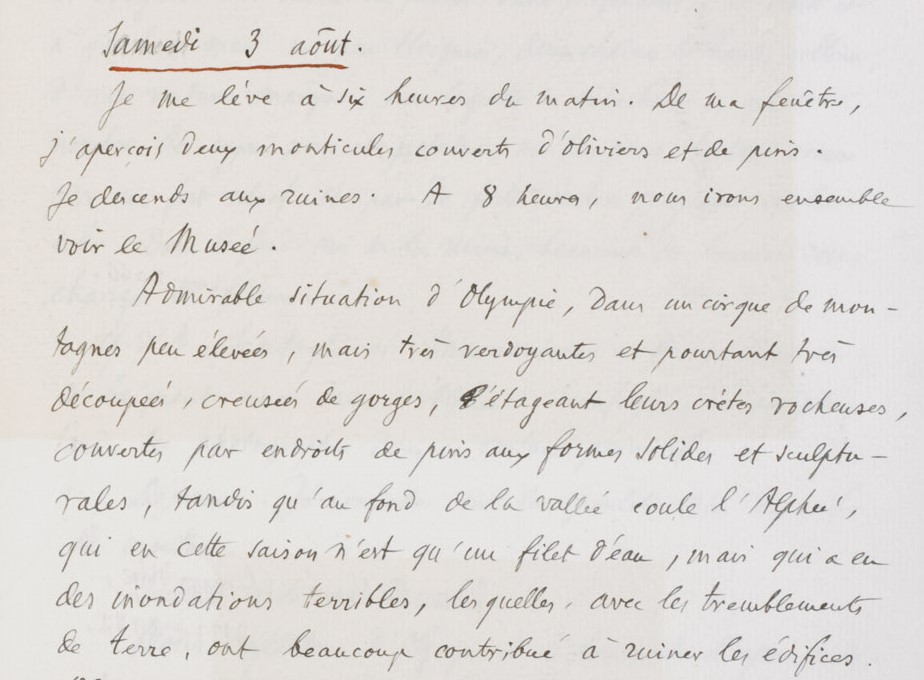 Samedi 3 août.
Je me lève à six heures du matin. De ma fenêtre,
j'aperçois deux monticules couverts d'oliviers et de pins.
Je descends aux ruines. A 8 heures, nous irons ensemble
voir le Musée.
Admirable situation d'Olympie, dans un cirque de mon-
tagnes peu élevées, mais très verdoyantes et pourtant très
découpées, creusées de gorges, étageant leurs crêtes rocheuses,
couvertes par endroits de pins aux formes solides et sculptu-
rales, tandis qu'au fond de la vallée coule l'Alphée,
qui en cette saison n'est qu'un filet d'eau, mais qui a eu
des inondations terribles, lesquelles, avec les tremblements
de terre, ont beaucoup contribué à ruiner les édifices.